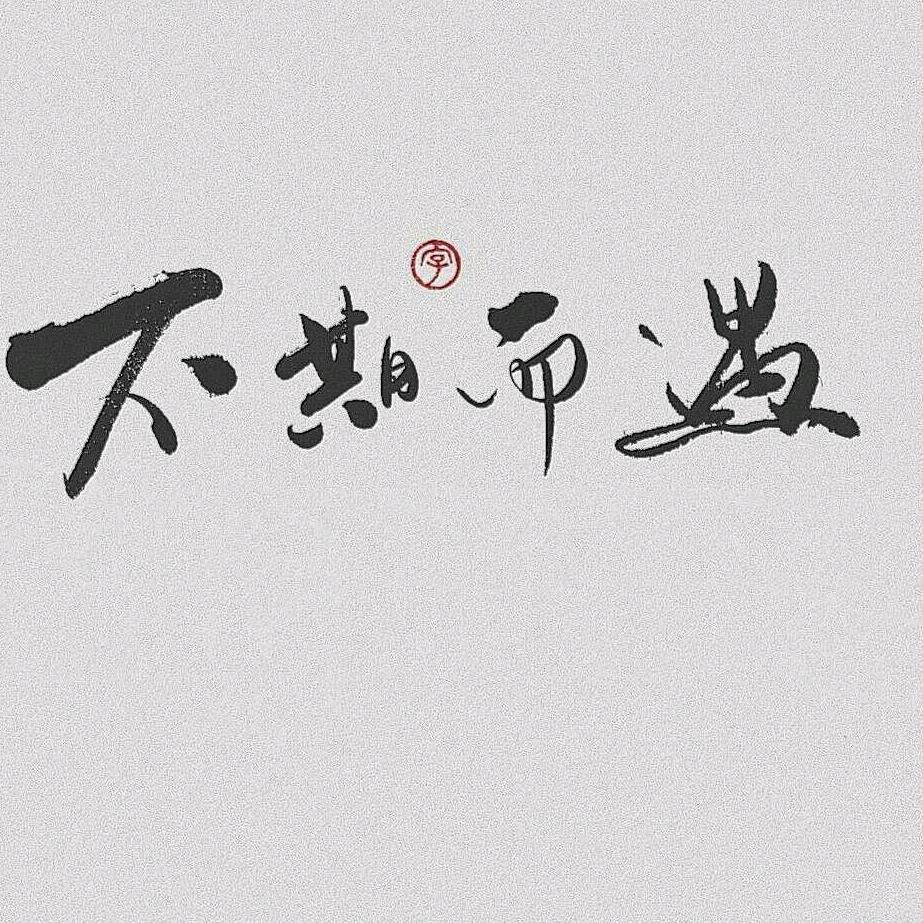 字
不期而遇